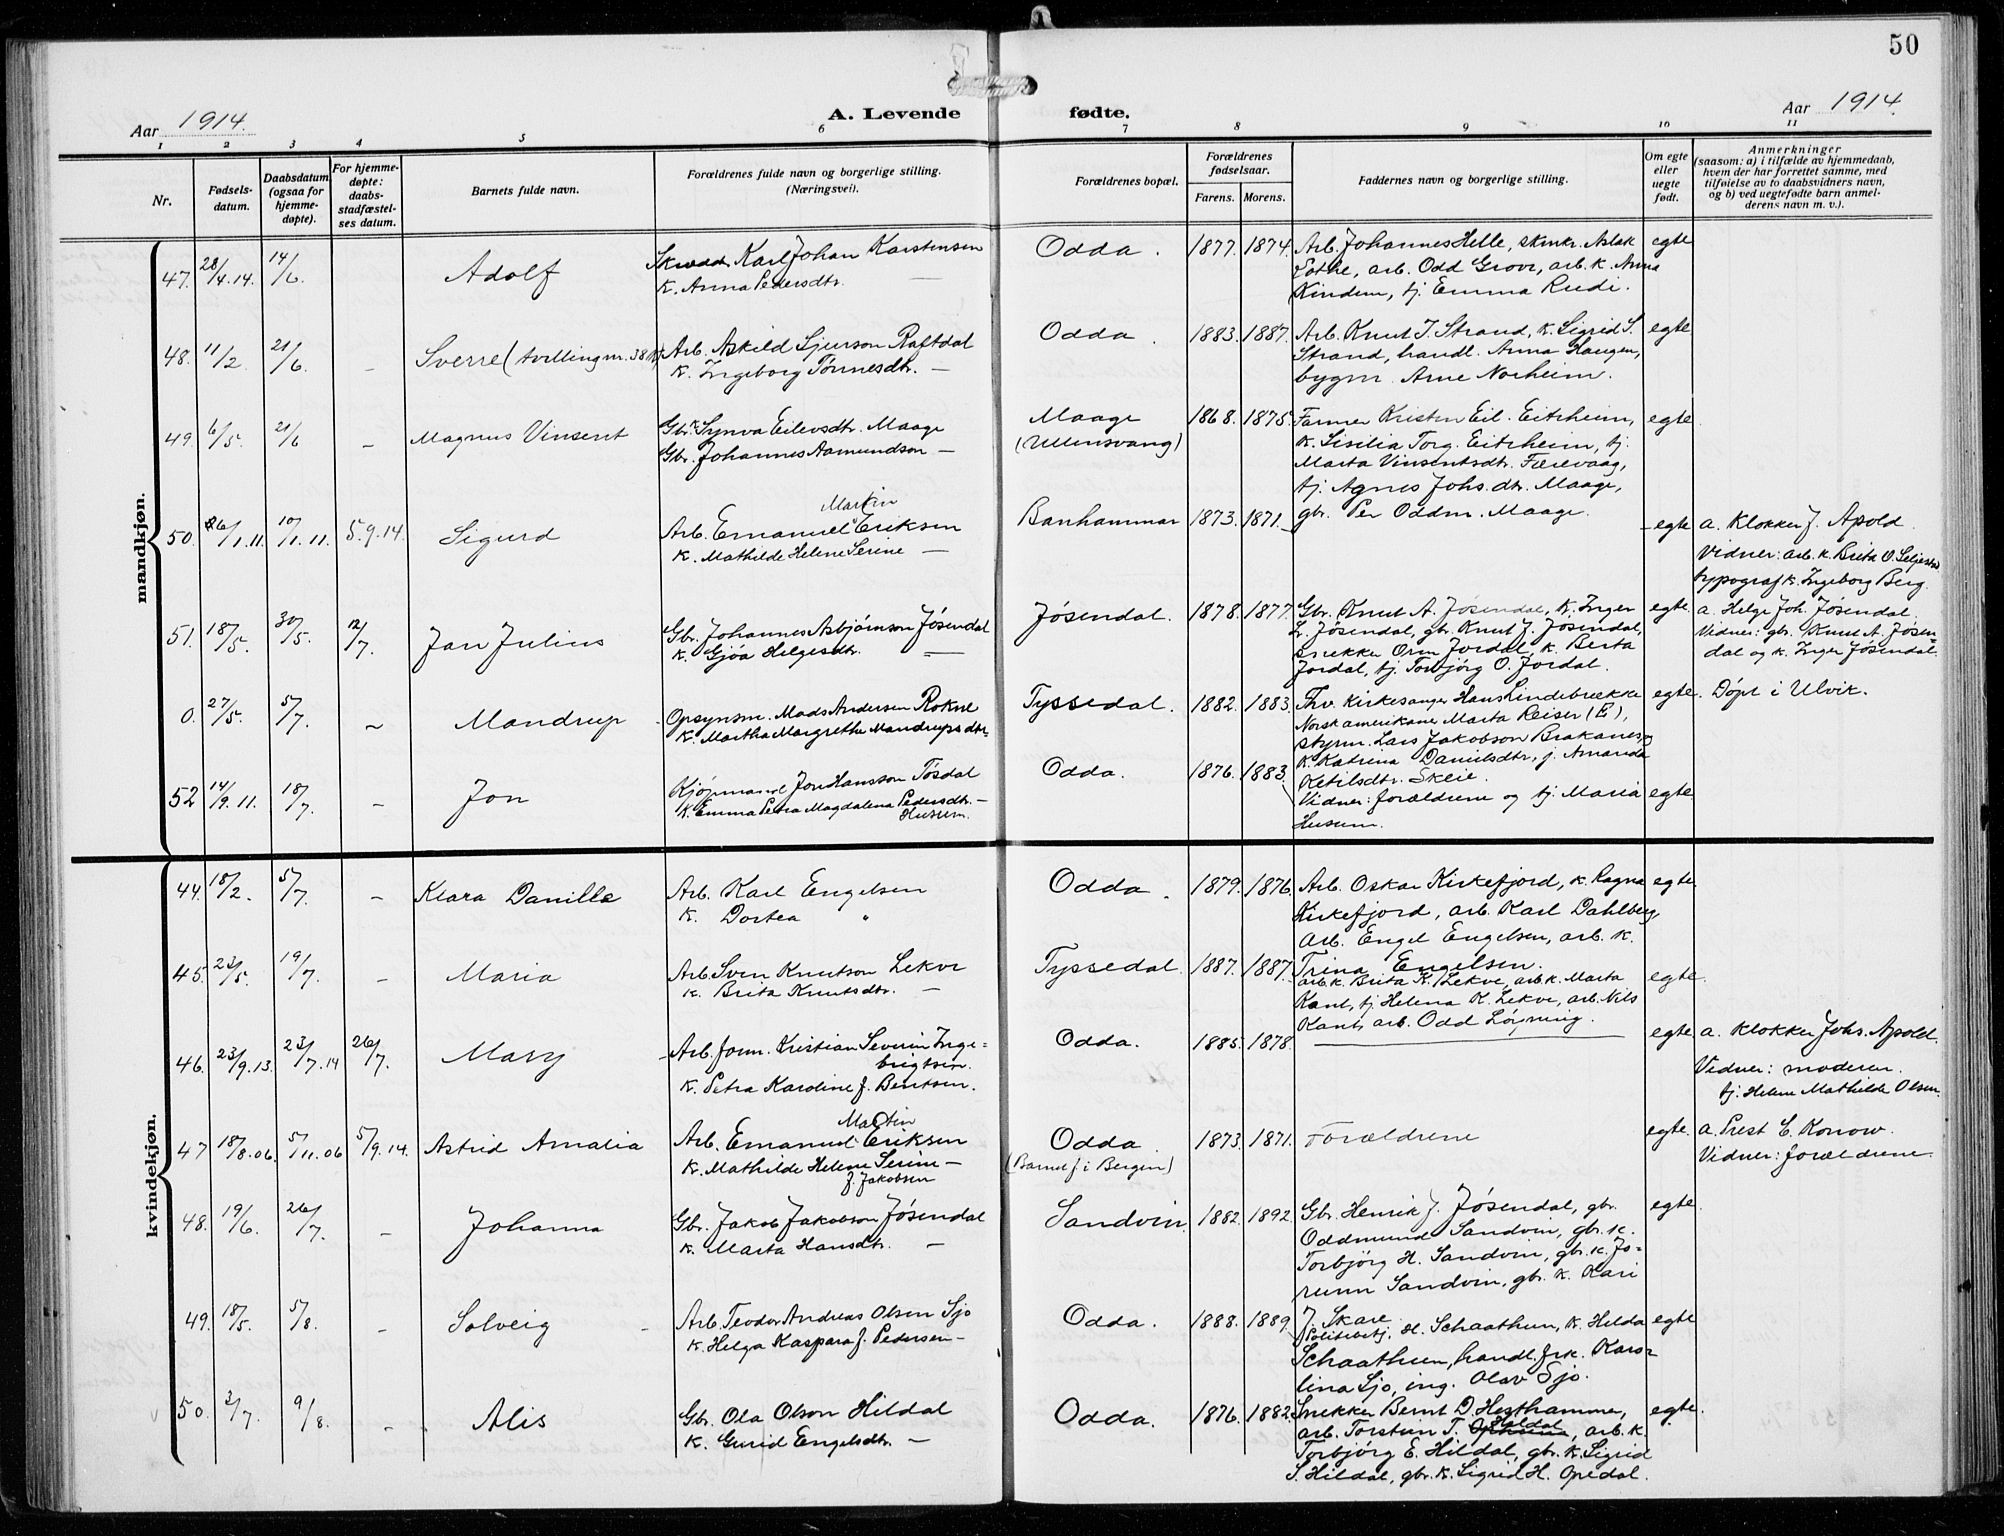 50
Aar 1914.
A. Levende fødte.
Aar 1914.
1 2 3 4 5 6 7 8 9 10 11
Nr.
Fødsels-
datum.
Daabsdatum
(ogsaa for
hjemme-
døpte).
For hjemme-
døpte:
daabs-
stadfæstel-
ses datum.
Barnets fulde navn.
Forældrenes fulde navn og borgerlige stilling.
(Næringsvei).
Forældrenes bopæl.
Forældrenes
fødselsaar.
Farens. Morens.
Faddernes navn og borgerlige stilling.
Om egte
eller
uegte
født.
Anmerkninger
(saasom: a) i tilfælde av hjemmedaab,
hvem der har forrettet samme, med
tilføielse av to daabsvidners navn,
og b) ved uegtefødte barn anmel-
derens navn m. v.).
mandkjøn.
47. 28/4.14. 14/6. Adolf
Karl Johan Karstensen
K. Anna Pedersdtr. —
Odda. 1877. 1874.
Arb. Johannes Helle, skmkr. Aslak
Lothe, arb. Odd Grove, arb. k. Anna
Kindem, tj. Emma Rudi.
egte
48. 11/2 21/6. – Sverre (tvilling nr. 38
Arb. Askild Sjurson Raftdal
K. Ingeborg Tønnesdtr. —
Odda. 1883. 1887.
Arb. Knut J. Strand, k. Sigrid S.
Strand, handl. Anna Haugen,
bygm. Arne Norheim.
egte
49. 6/5. 21/6 – Magnus Vinsent
Gbr. k. Synva Eilevsdtr. Maage
Gbr. Johannes Aamundson —
Maage
(Ullensvang)
1868. 1875.
Farmer Kristen Eil. Eitrheim,
k. Sisilia Torg. Eitrheim, tj.
Marta Vinsentsdtr. Færevaag,
tj. Agnes Johs.dtr. Maage,
gbr. Per Oddm. Maage.
egte.
50. 26/1.11. 10/1.11. 5.9.14. Sigurd
Martin
Arb. Emanuel Eriksen
K. Mathilde Helene Serine —
Banhammar 1873. 1871.
– egte
a. Klokker J. Apold.
Vidner: arb. k. Brita O. Seljestad
typograf k. Ingeborg Berg.
51. 18/5. 30/5. 12/7. Jan Julius
Gbr. Johannes Asbjørnson Jøsendal
K. Gjøa Helgesdtr. —
Jøsendal. 1878. 1877.
Gbr. Knut A. Jøsendal, k. Inger
Jøsendal, gbr. Knut J. Jøsendal,
snekker Orm Jordal, k. Berta
Jordal, tj. Torbjørg O. Jordal.
egte.
a. Helge Joh. Jøsendal.
Vidner: gbr. Knut A. Jøsen-
dal og k. Inger Jøsendal.
0. 27/5. 5/7. – Mandrup
Opsynsm. Mads Andersen Rokne
K. Martha Margrethe Mandrupsdtr.
Tyssedal. 1882. 1883.
Fhv. kirkesanger Hans Lindebrække
Norskamerikaner Marta Reiser (E),
styrm. Lars Jakobson Brakanes,
k. Katrina Danielsdtr., j. Amanda
Ketilsdtr. Skeie.
egte.
Døpt i Ulvik.
52 14/9.11. 18/7. – Jon
Kjøpmand Jon Hansson Tøsdal
K. Emma Petra Magdalena Pedersdtr. —
Husum.
Odda. 1876. 1883.
Vidner: forældrene og tj. Maria
Husum.
egte
kvindekjøn.
44. 18/2. 5/7. – Klara Danille
Arb. Karl Engelsen
K. Dortea "
Odda. 1879. 1876.
Arb. Oskar Kirkefjord, k. Ragna
Kirkefjord, arb. Karl Dahlberg,
Arb. Engel Engelsen, arb. k.
Trina Engelsen.
egte
45. 23/5. 19/7. – Maria
Arb. Sven Knutson Lekve
K. Brita Knutsdtr. —
Tyssedal. 1887. 1887.
arb. k. Brita K. Lekve, arb. k. Marta
Kant, tj. Helena K. Lekve, arb. Nils
Kant, arb. Odd Løyning.
egte.
46. 23/9.13. 23/7.14 26/7. Mary
Arb. form. Kristian Severin Inge-
brigtsen.
K. Petra Karoline f. Bentsen.
Odda. 1885. 1878.
egte
a. Klokker Johs. Apold.
Vidner: moderen.
tj. Helene Mathilde Olsen.
47 18/8.06. 5/11.06 5/9.14. Astrid Amalia
Martin
Arb. Emanuel Eriksen
K. Mathilde Helene Serine —
f. Jakobsen
Odda
(Barnet f. i Bergen)
1873. 1871. Forældrene
egte.
a. Prest C. Konow.
Vidner: forældrene.
48. 19/6. 26/7. – Johanna
Gbr. Jakob Jakobson Jøsendal
K. Marta Hansdtr. —
Sandvin. 1882. 1892.
Gbr. Henrik J. Jøsendal, gbr.
Oddmund Sandvin, gbr. k.
Torbjørg H. Sandvin, gbr. k. Jo-
runn Sandvin, gbr. k. Kari
J. Skare.
egte.
49. 18/5. 5/8. – Solveig
Arb. Teodor Andreas Olsen Sjo
K. Helga Kaspara f. Pedersen —
Odda. 1888. 1889
Politibetj. H. Schaathun, k. Hilda
Schaathun, handl. frk. Karo-
lina Sjo, ing. Olav Sjo.
egte
50. 3/7. 9/8. – Alis
Gbr. Ola Olson Hildal
K. Gurid Engelsdtr. —
Odda. 1876. 1882.
Snekker Bernt D. Hesthammer,
arb. Torstein T. Hildal, arb. k.
Torbjørg E. Hildal, gbr. k. Sigrid
S. Hildal, gbr. k. Sigrid H. Opedal.
egte.